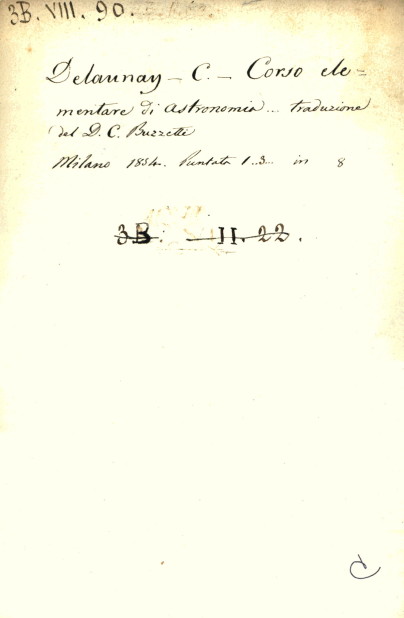 3B. VIII. 90.
Delaunay – C. – Corso ele=
mentare di Astronomia... traduzione
del D. C. Buzzetti
Milano 1854. Puntata 1..3... in 8
3B. – II. 22.